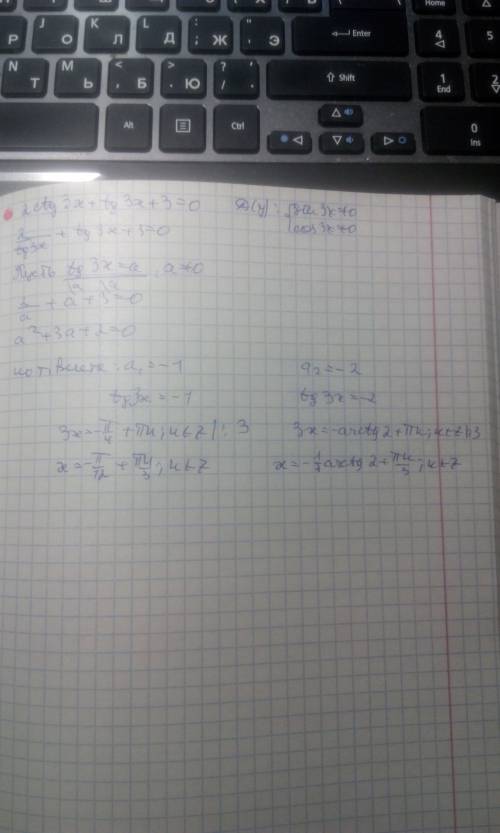 Home
Р J О K Л L Д : ; Ж " ' Э Enter 4 5
N Т M Ь < , Б > . Ю ? / Shift 1 End 2
Alt Ctrl 0 Ins
2ctg3x+tg3x+3=0 D(y): {sin3x≠0
cos3x≠0
2/tg3x + tg3x+3=0
Пусть tg3x=a, a≠0
2/a + a+3=0
a²+3a+2=0
по т. Виета: a₁=-1 a₂=-2
tg3x=-1 tg3x=-2
3x=-π/4+πk; k∈Z |:3 3x=-arctg2+πk; k∈Z |:3
x=-π/12+πk/3; k∈Z x=-1/3arctg2+πk/3; k∈Z